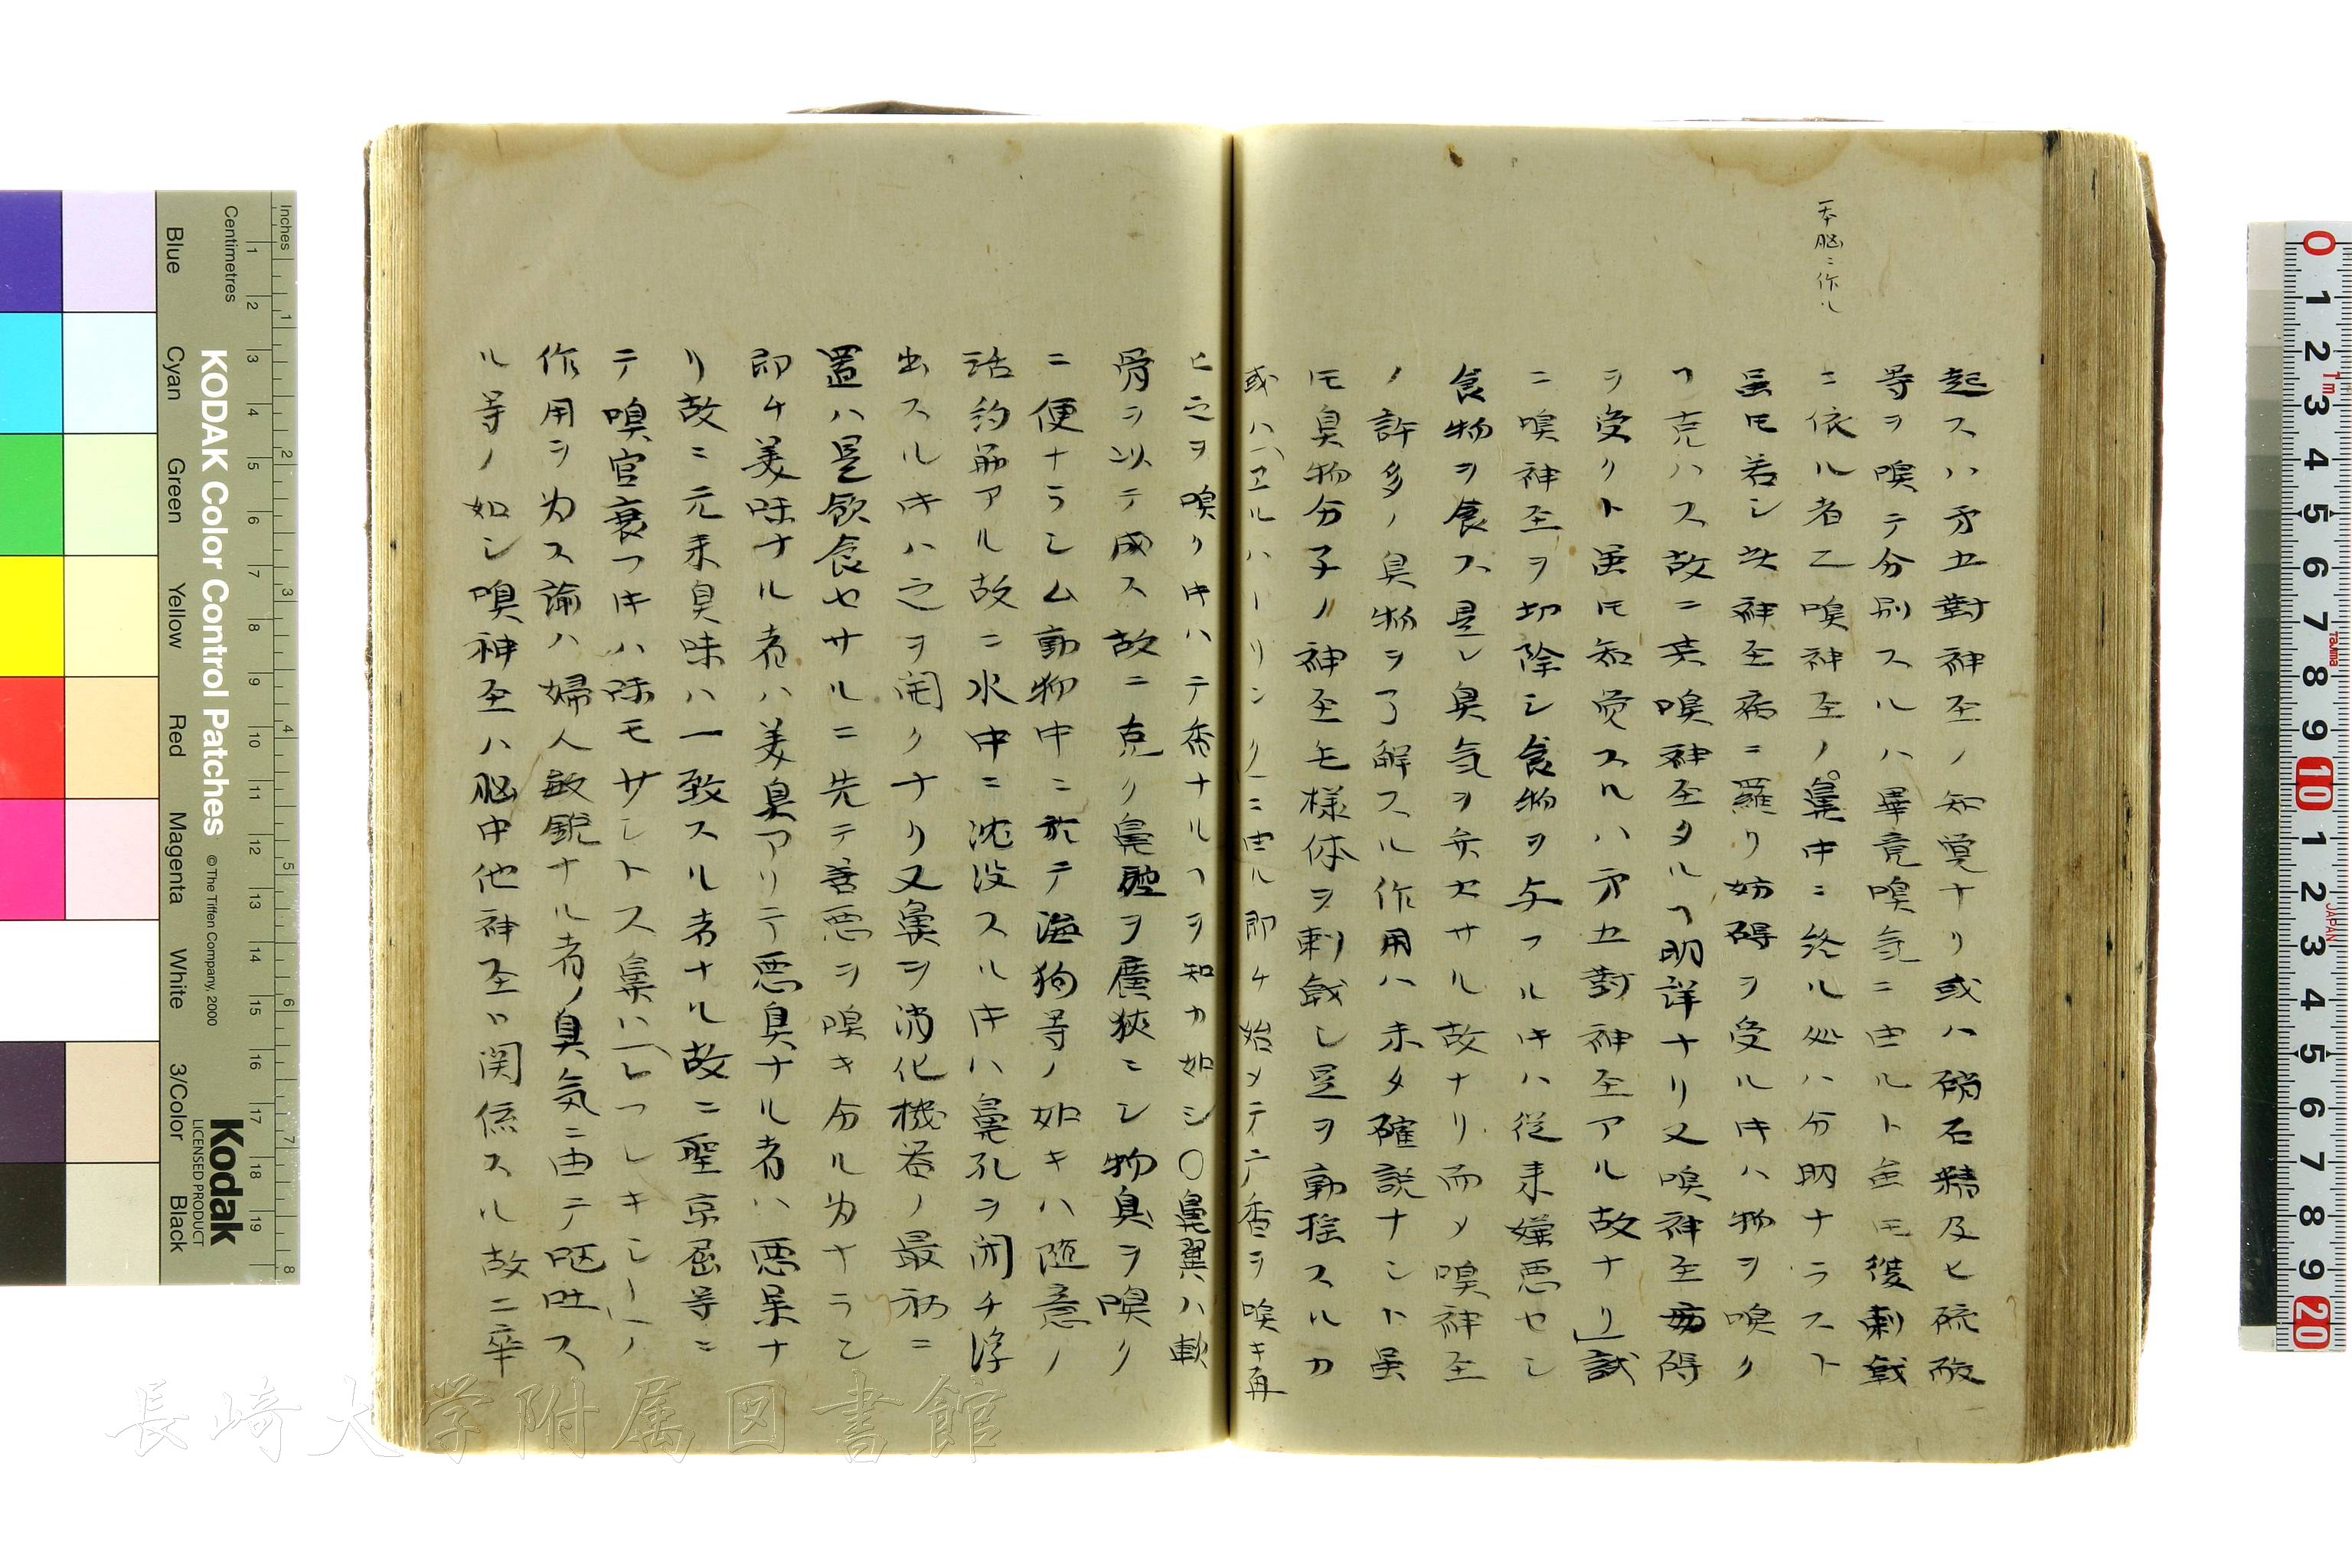 一本脳ニ作ル
起スハ才五對神圣ノ知覚ナリ或ハ硝石精及ヒ硫酸
等ヲ嗅テ分別スルハ畢竟嗅気ニ由ルト虽𪜈後刺戟
ニ依ル者乙嗅神圣ノ鼻中ニ終ル処ハ分明ナラスト
虽𪜈若シ此神圣病ニ羅リ妨碍ヲ受ルキハ物ヲ嗅ク
ヿ克ハス故ニ其嗅神圣タルヿ明詳ナリ又嗅神圣妨碍
ヲ受クト虽𪜈知覚スルハ才五對神圣アル故ナリ」試
ニ嗅神圣ヲ切除シ食物ヲ与フルキハ従来嫌悪セシ
食物ヲ食ス是レ臭気ヲ弁セサル故ナリ而メ嗅神圣
ノ許多ノ臭物ヲ了解スル作用ハ未タ確説ナシト虽
𪜈臭物分子ノ神圣モ様体ヲ刺戟シ是ヲ動揺スルカ
或ハ(ヱルハーリンク)ニ由ル即チ始メテ一户香ヲ嗅キ再
ヒ之ヲ嗅クキハテ香ナルヿヲ知カ如シ〇鼻翼ハ軟
骨ヲ以テ成ス故ニ克ク鼻腔ヲ廣狹ニシ物臭ヲ嗅ク
ニ便ナラシム動物中ニ於テ海狗等ノ如キハ随意ノ
括約筋アル故ニ水中ニ沈没スルキハ鼻孔ヲ閉チ浮
出スルキハ之ヲ開クナリ又鼻ヲ消化機器ノ最初ニ
置ハ是飲食セサルニ先テ善悪ヲ嗅キ分ル為ナラン
即チ美味ナル者ハ美臭アリテ悪臭ナル者ハ悪味ナ
リ故ニ元来臭味ハ一致スル者ナル故ニ聖京屈等ニ
テ嗅官衰フキハ味モサントス鼻ハ(レフレキシー)ノ
作用ヲ為ス諭ハ婦人敏鋭ナル者ノ臭気ニ由テ嘔吐ス
ル等ノ如シ嗅神圣ハ脳中他神圣ニ関係スル故ニ卒
KODAK Color Control Patches
© The Tiffen Company, 2000
Kodak
LICENSED PRODUCT
Inches
Centimetres
Blue
Cyan
Green
Yellow
Red
Magenta
White
3/Color
Black
長崎大学附属図書館